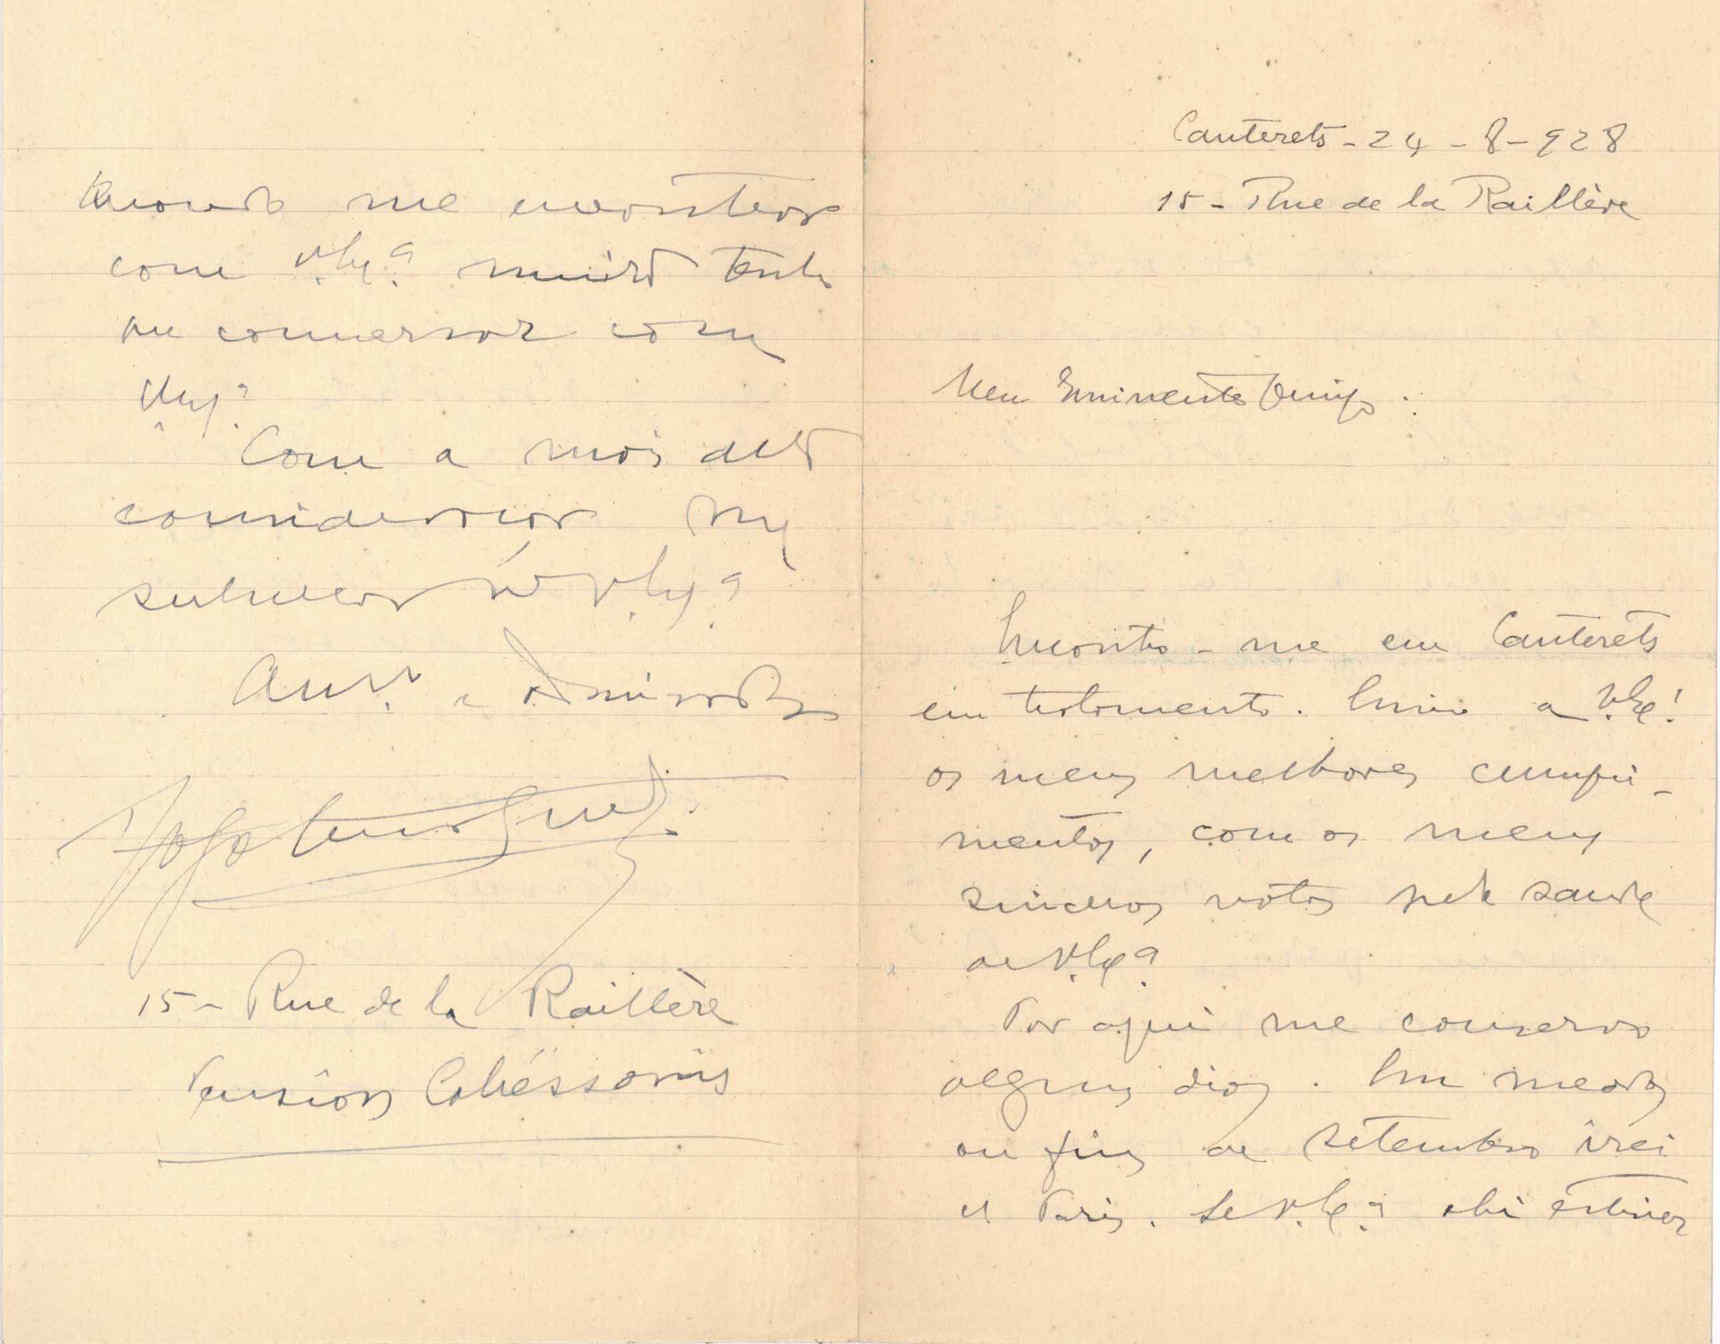 Cauterets - 24 - 8 - 928
15 - Rue de la Raillère
Meu Eminente Amigo.
Encontro-me em Cauterets
em tratamento. Envio a V. Ex.ª
os meus melhores cumpri-
mentos, com os meus
sinceros votos pela saude
de V. Ex.ª
Por aqui me conservo
alguns dias. Em meados
ou fins de setembro irei
a Paris. Se V. Ex.ª ahi estiver
me encontrar
com V. Ex.ª muito
conversar com
V. Ex.ª
Com a mais alta
consideração me
subscrevo de V. Ex.ª
Am.º e Admirador
15 - Rue de la Raillère
Pension